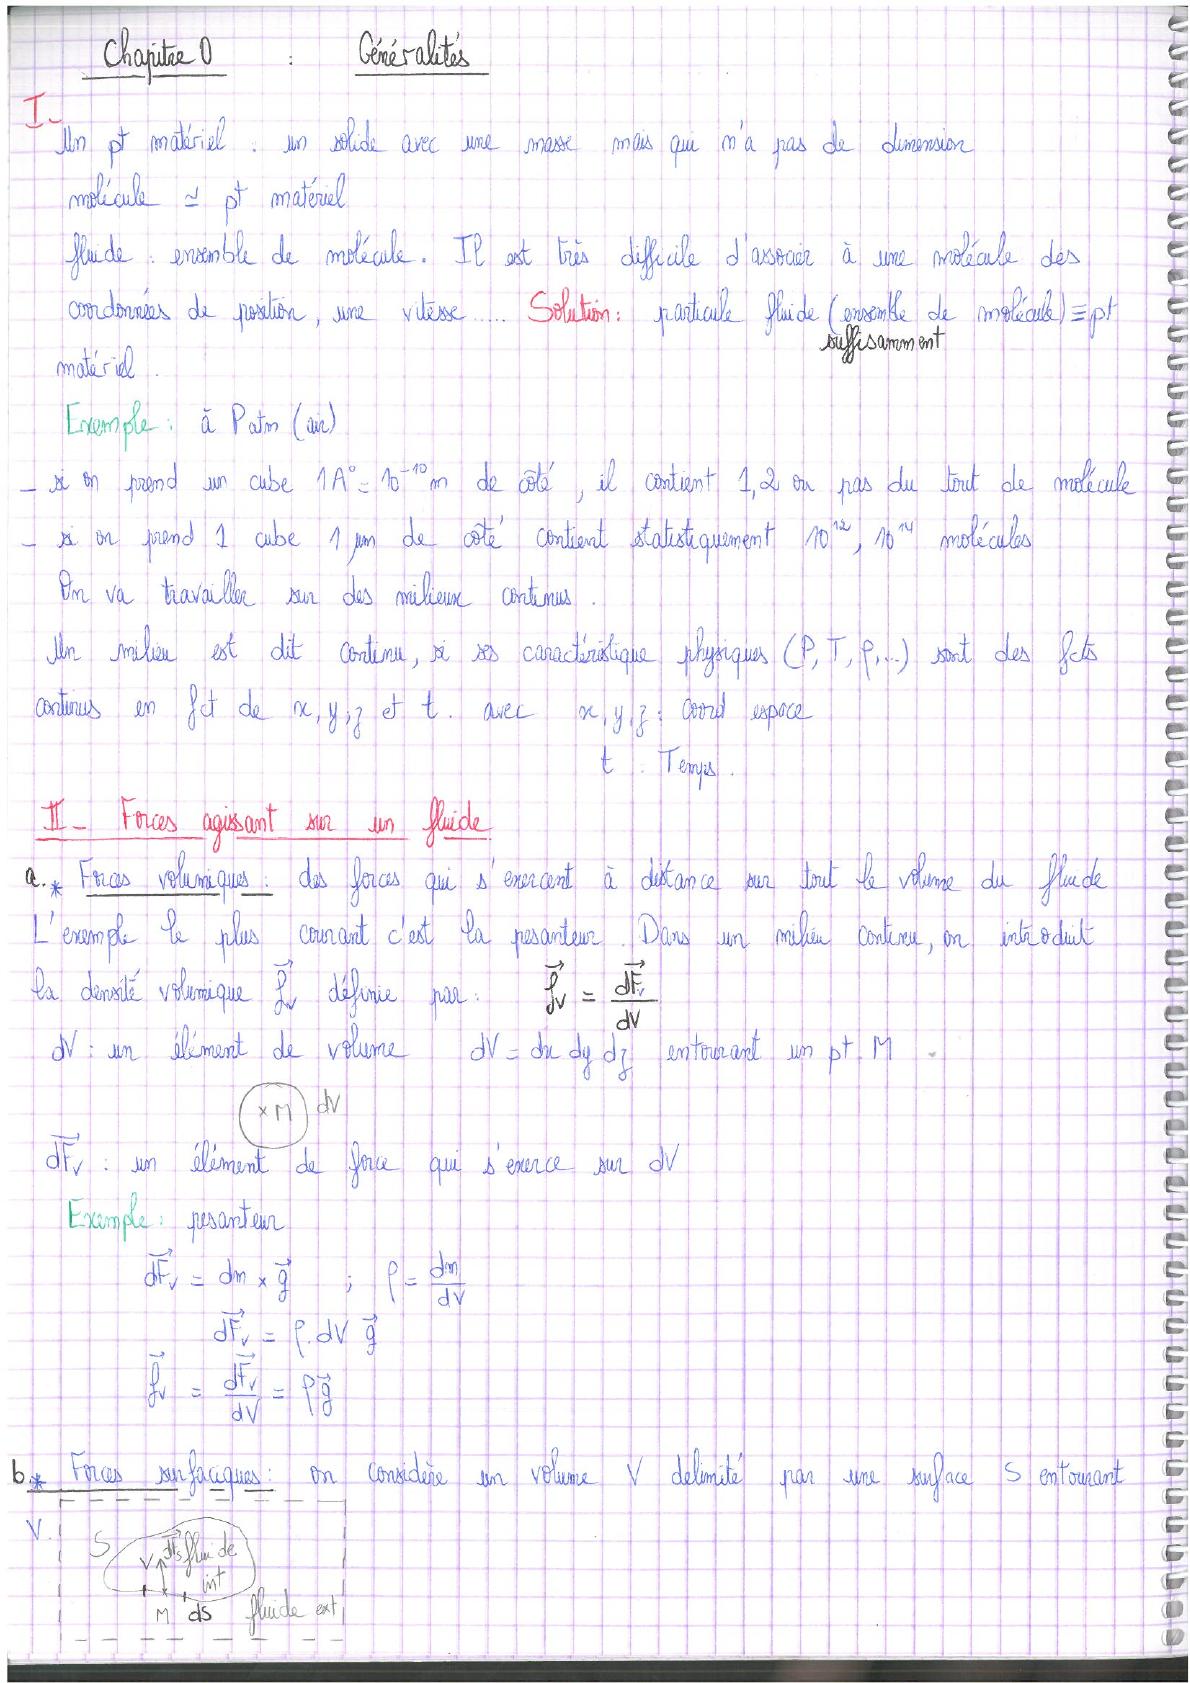 Chapitre 0 : Généralités
I-
Un pt matériel : un solide avec une masse mais qui n'a pas de dimension
molécule ≃ pt matériel
fluide : ensemble de molécule. Il est très difficile d'associer à une molécule des
coordonnées de position, une vitesse..... Solution: particule fluide (ensemble de molécule) ≡ pt
suffisamment
matériel.
Exemple: à Patm (air)
- si on prend un cube 1A° = 10⁻¹⁰m de côté, il contient 1,2 ou pas du tout de molécule
- si on prend 1 cube 1 µm de côté contient statistiquement 10¹², 10¹⁴ molécules
On va travailler sur des milieux continus.
Un milieu est dit continu, si ses caractéristique physiques (P, T, ρ,...) sont des fcts
continus en fct de x, y, z et t. avec x, y, z : coord espace
t : Temps.
II- Forces agissant sur un fluide
a.* Forces volumiques : des forces qui s'exercent à distance sur tout le volume du fluide
L'exemple le plus courant c'est la pesanteur. Dans un milieu continu, on introduit
la densité volumique f⃗v définie par : f⃗v = dF⃗v / dV
dV : un élément de volume dV = dx dy dz entourant un pt M.
× M dV
dF⃗v : un élément de force qui s'exerce sur dV
Exemple : pesanteur
dF⃗v = dm × g⃗ ; ρ = dm / dV
dF⃗v = ρ.dV g⃗
f⃗v = dF⃗v / dV = ρg⃗
b* Forces surfaciques : on considère un volume V delimité par une surface S entourant
V.
S V dF⃗s fluide
int
M dS fluide ext